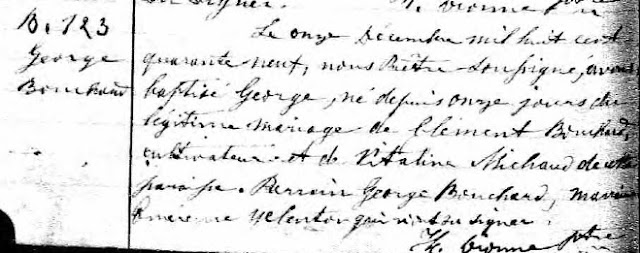 su signer. H. Dionne ptre
B. 123
George
Bouchard
Le onze Décembre mil huit cent
quarante neuf, nous Prêtre soussigné, avons
baptisé George, né depuis onze jours du
légitime mariage de Clément Bouchard,
cultivateur et de Vitaline Michaud de cette
paroisse. Parrain George Bouchard, marraine
qui n'ont su signer.
H. Dionne ptre